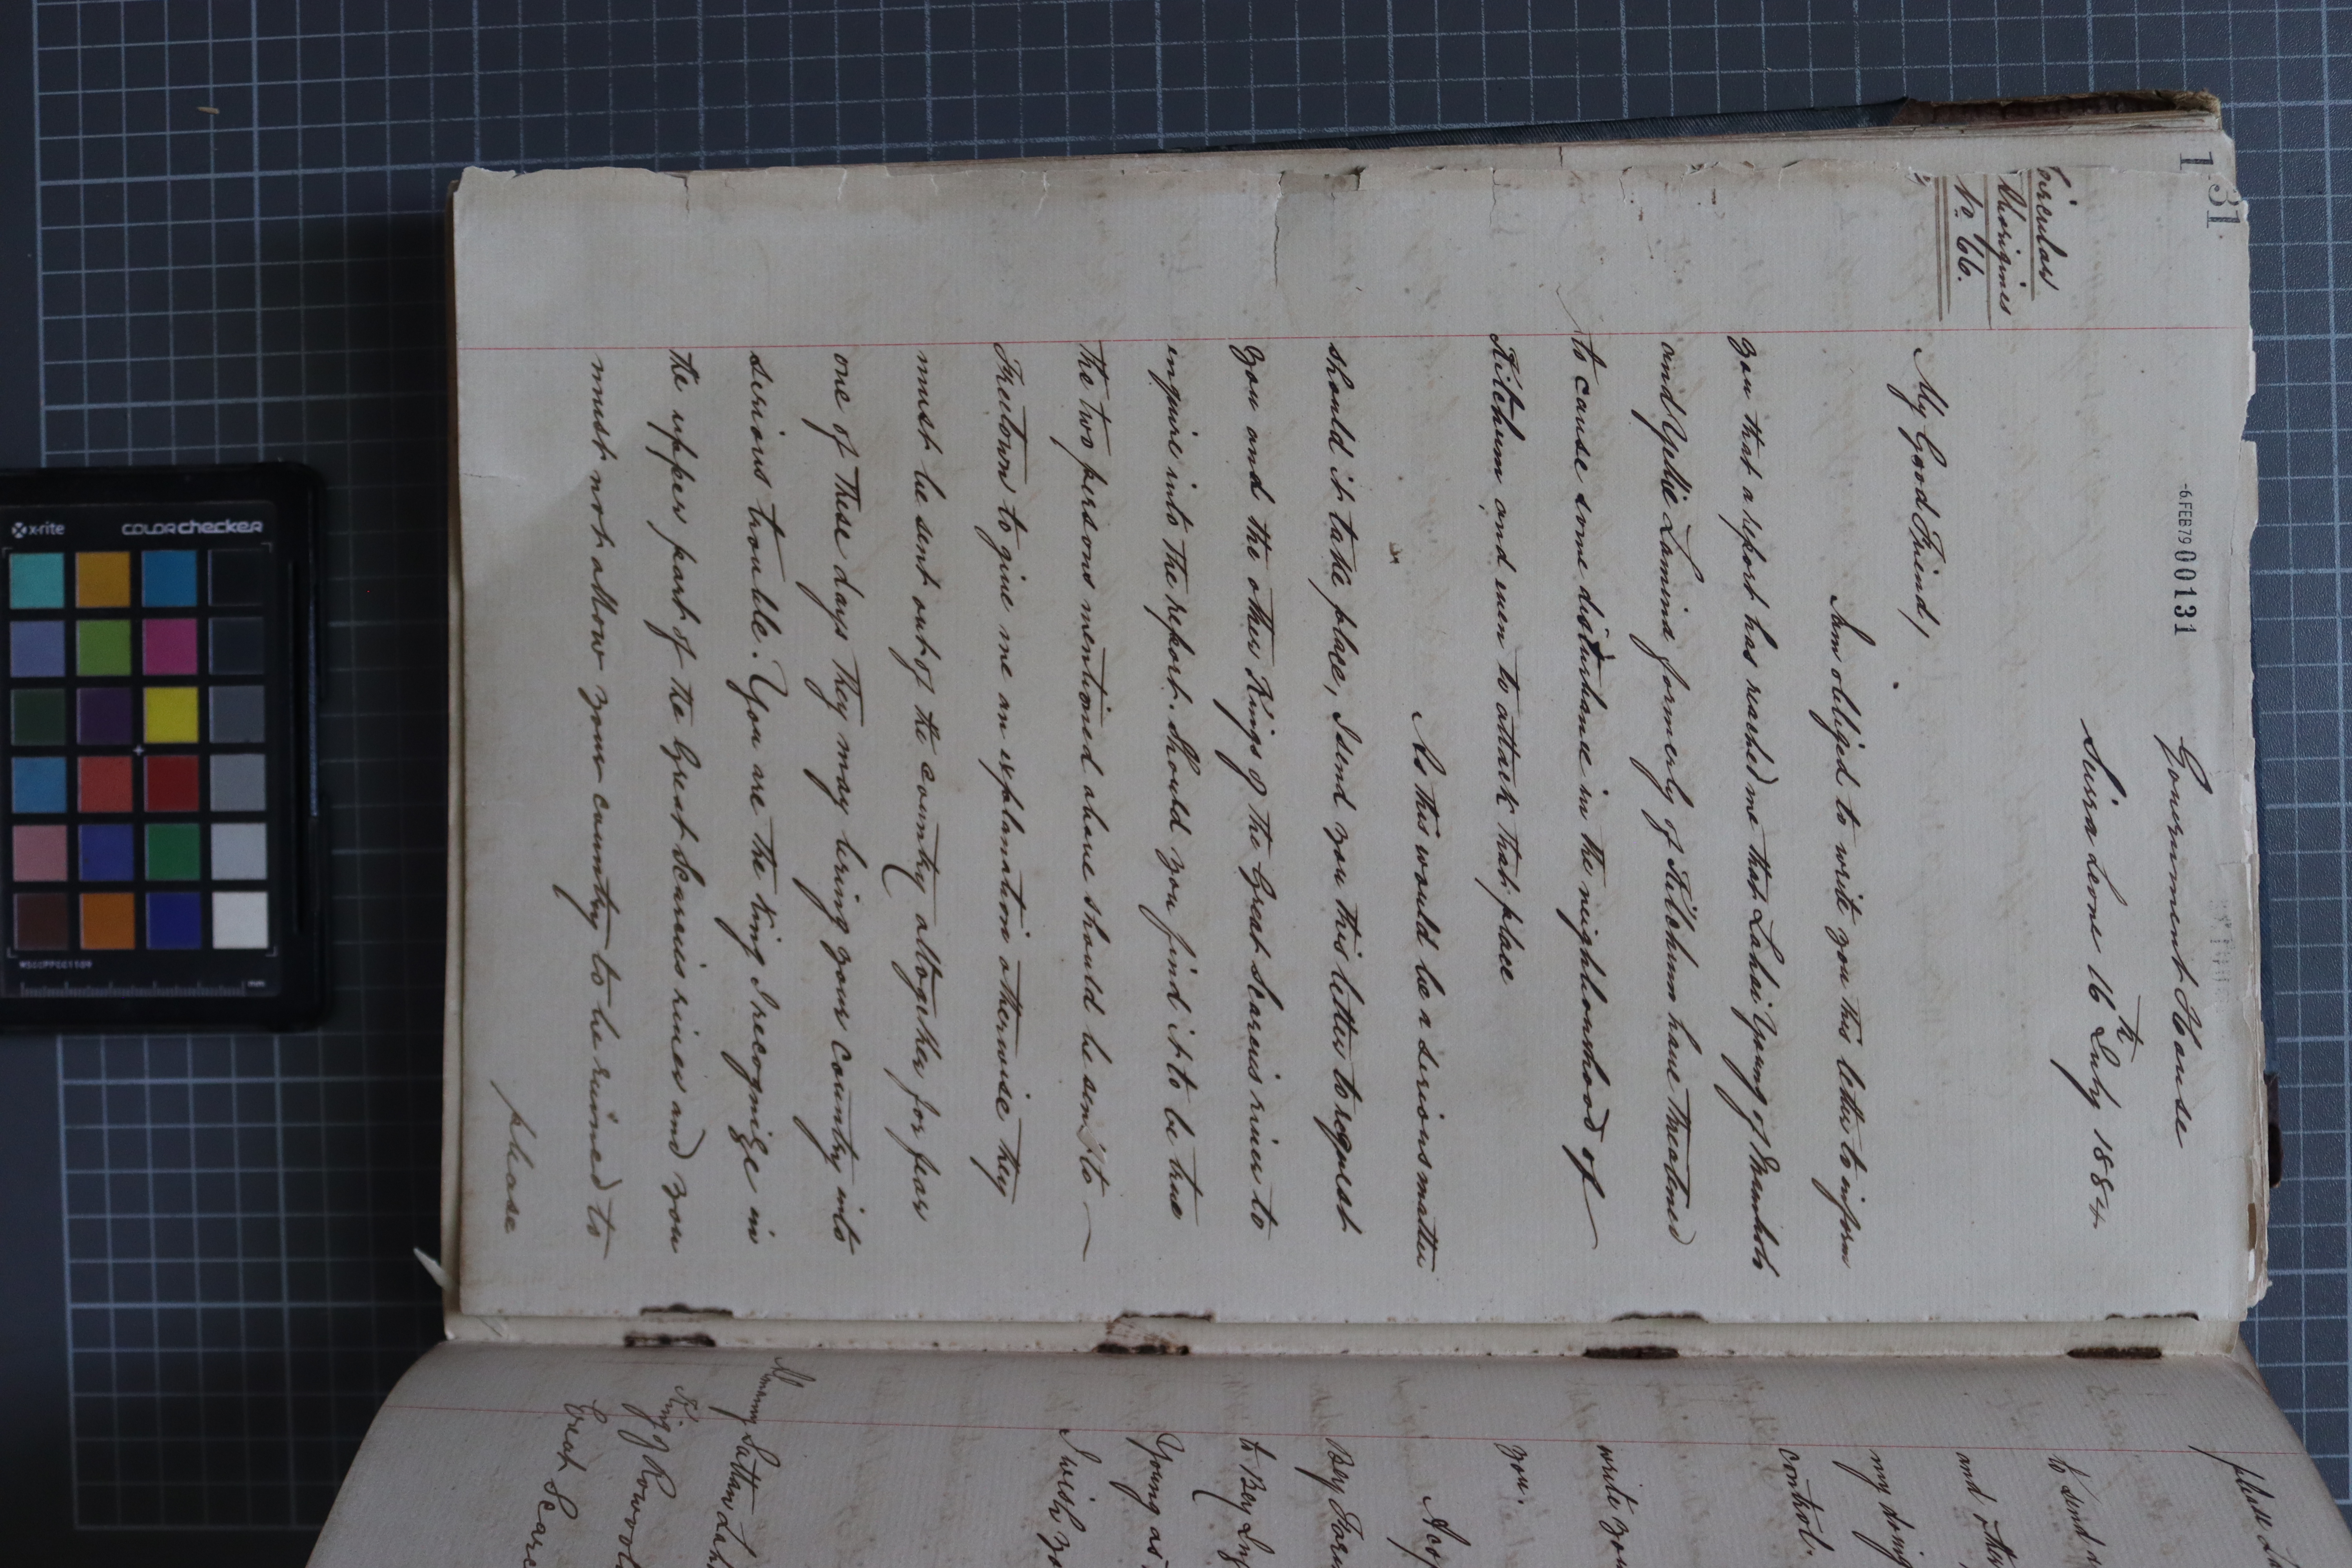 131
-6 FEB 79 00131
Government House
Sierra Leone 16th July 1884.
Circular
Aborigines
No 66.
My Good Friend,
Am obliged to write you this letter to inform
you that a report has reached me that Lahai Young of
and Yelie Lamina formerly of Kitchum have threatened
to cause some disturbance in the neighbourhood of
Kitchum and even to attack that place
As this would be a serious matter
should it take place, I send you this letter to request
you and the other Kings of the Great Scarcies river to
inquire into the report. Should you find it to be true
the two persons mentioned above should be sent to
Freetown to give me an explanation otherwise they
must be sent out of the country altogether for fear
one of these days they may bring your country into
serious trouble. You are the King I recognize in
the upper part of the Great Scarcies river and you
must not allow your country to be ruined to
please
please
to send
and
my doing
control.
write you
you.
A cop
Bey
to Bey
Young as
I wish yo
Almamy Sattan Lah
King of
Great Scarc
x-rite
colorchecker
mm